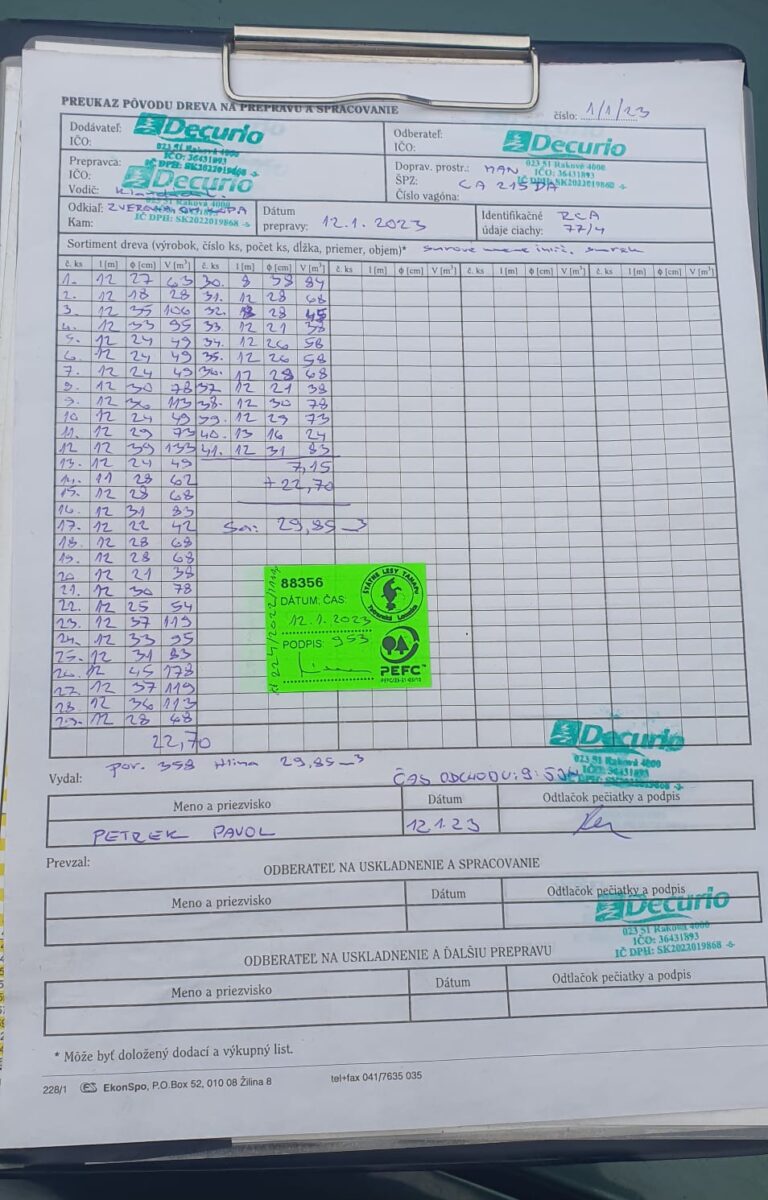 PREUKAZ PÔVODU DREVA NA PREPRAVU A SPRACOVANIE
číslo: 1/1/23
Dodávateľ: Decurio
IČO: 023 51 Raková 4000
IČO: 36431893
IČ DPH: SK2022019868 -6-
Odberateľ: Decurio
IČO: 023 51 Raková 4000
IČO: 36431893
IČ DPH: SK2022019868 -6-
Prepravca: Decurio
IČO:
Vodič:
IČ DPH: SK2022019868 -6-
Doprav. prostr.: MAN
ŠPZ: CA 215DA
Číslo vagóna:
Odkiaľ:
Kam:
Dátum prepravy: 12.1.2023
Identifikačné údaje ciachy: RCA 77/4
Sortiment dreva (výrobok, číslo ks, počet ks, dĺžka, priemer, objem)*
č. ks l [m] ϕ [cm] V [m³] č. ks l [m] ϕ [cm] V [m³] č. ks l [m] ϕ [cm] V [m³] č. ks l [m] ϕ [cm] V [m³] č. ks l [m] ϕ [cm] V [m³]
1. 12 27 63 30. 9 38 84
2. 12 18 28 31. 12 28 68
3. 12 35 106 32. 28 45
4. 12 33 95 33 12 21 38
5. 12 24 49 34. 12 26 58
6. 12 24 49 35. 12 26 58
7. 12 24 49 36. 12 28 68
8. 12 30 78 37. 12 21 38
9. 12 36 113 38. 12 30 78
10 12 24 49 39. 12 29 73
11. 12 29 73 40. 13 16 24
12 12 39 133 41. 12 31 83
13. 12 24 49 7,15
14. 11 28 62 + 22,70
15. 12 28 68
16. 12 31 83
17. 12 22 42 Sa: 29,85
18. 12 28 68
19. 12 28 68
20 12 21 38
21. 12 30 78
22. 12 25 54
23. 12 37 119
24. 12 33 95
25. 12 31 83
26. 12 45 178
27 12 37 119
28. 12 36 113
29. 12 28 68
22,70
88356
DÁTUM, ČAS:
12.1.2023
PODPIS: 953
ŠTÁTNE LESY TANAPu
Tatranská Lomnica
PEFC™
Decurio
023 51 Raková 4000
IČO: 36431893
IČ DPH: SK2022019868 -6-
por. 358 Hlina 29,85
Vydal:
ČAS ODCHODU: 9:
Meno a priezvisko Dátum Odtlačok pečiatky a podpis
PETREK PAVOL 12.1.23
Prevzal:
ODBERATEĽ NA USKLADNENIE A SPRACOVANIE
Meno a priezvisko Dátum Odtlačok pečiatky a podpis
Decurio
023 51 Raková 4000
IČO: 36431893
IČ DPH: SK2022019868 -6-
ODBERATEĽ NA USKLADNENIE A ĎALŠIU PREPRAVU
Meno a priezvisko Dátum Odtlačok pečiatky a podpis
* Môže byť doložený dodací a výkupný list.
228/1 ES EkonSpo, P.O.Box 52, 010 08 Žilina 8 tel+fax 041/7635 035